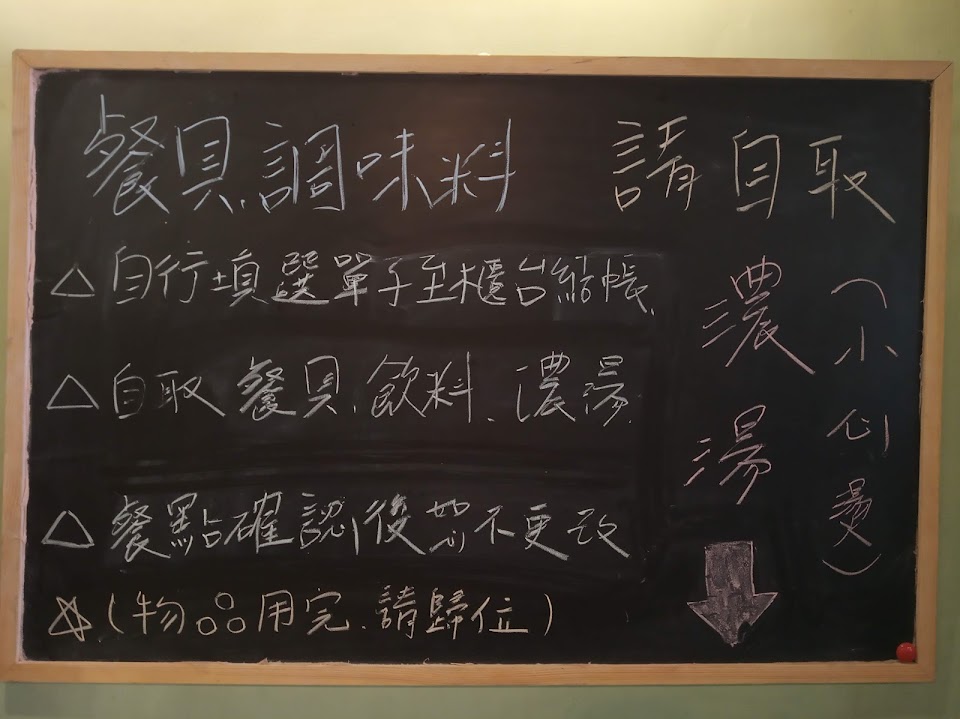 餐具、調味料 請自取
△自行填選單子至櫃台結帳、
△自取餐具、飲料、濃湯
△餐點確認後恕不更改
☆(物品用完、請歸位)
濃湯
(小心燙)